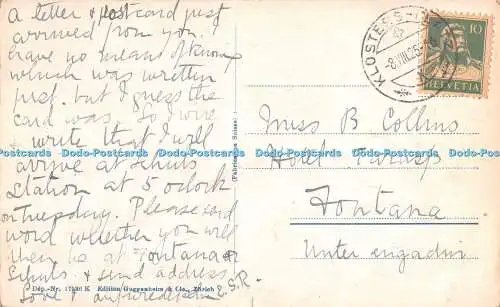 a letter & postcard just
arrived from you. I
have no means of knowing
which was written
first. but I guess the
card was. So I wire
write that I will
arrive at Schuls
station at 5 o'clock
on Tuesday. Please send
word whether you will
then be at Fontana or
Schuls & send address.
Love & aufwiedersehn E.S.R.
Dép.-Nr. 17530 K Edition Guggenheim & Co., Zürich
(Fabrication Suisse)
KLOSTERS
-8.VIII.25
10
HELVETIA
Miss B Collins
Hotel
Fontana
Unter engadin
Dodo-Postcards Dodo-Postcards Dodo-Postcards Dodo-Postcards Dodo-Postcards